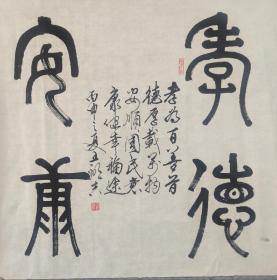 孝德
安康
孝为百善首
德厚载万物
安顺国民意
康健幸福途
丙申之夏